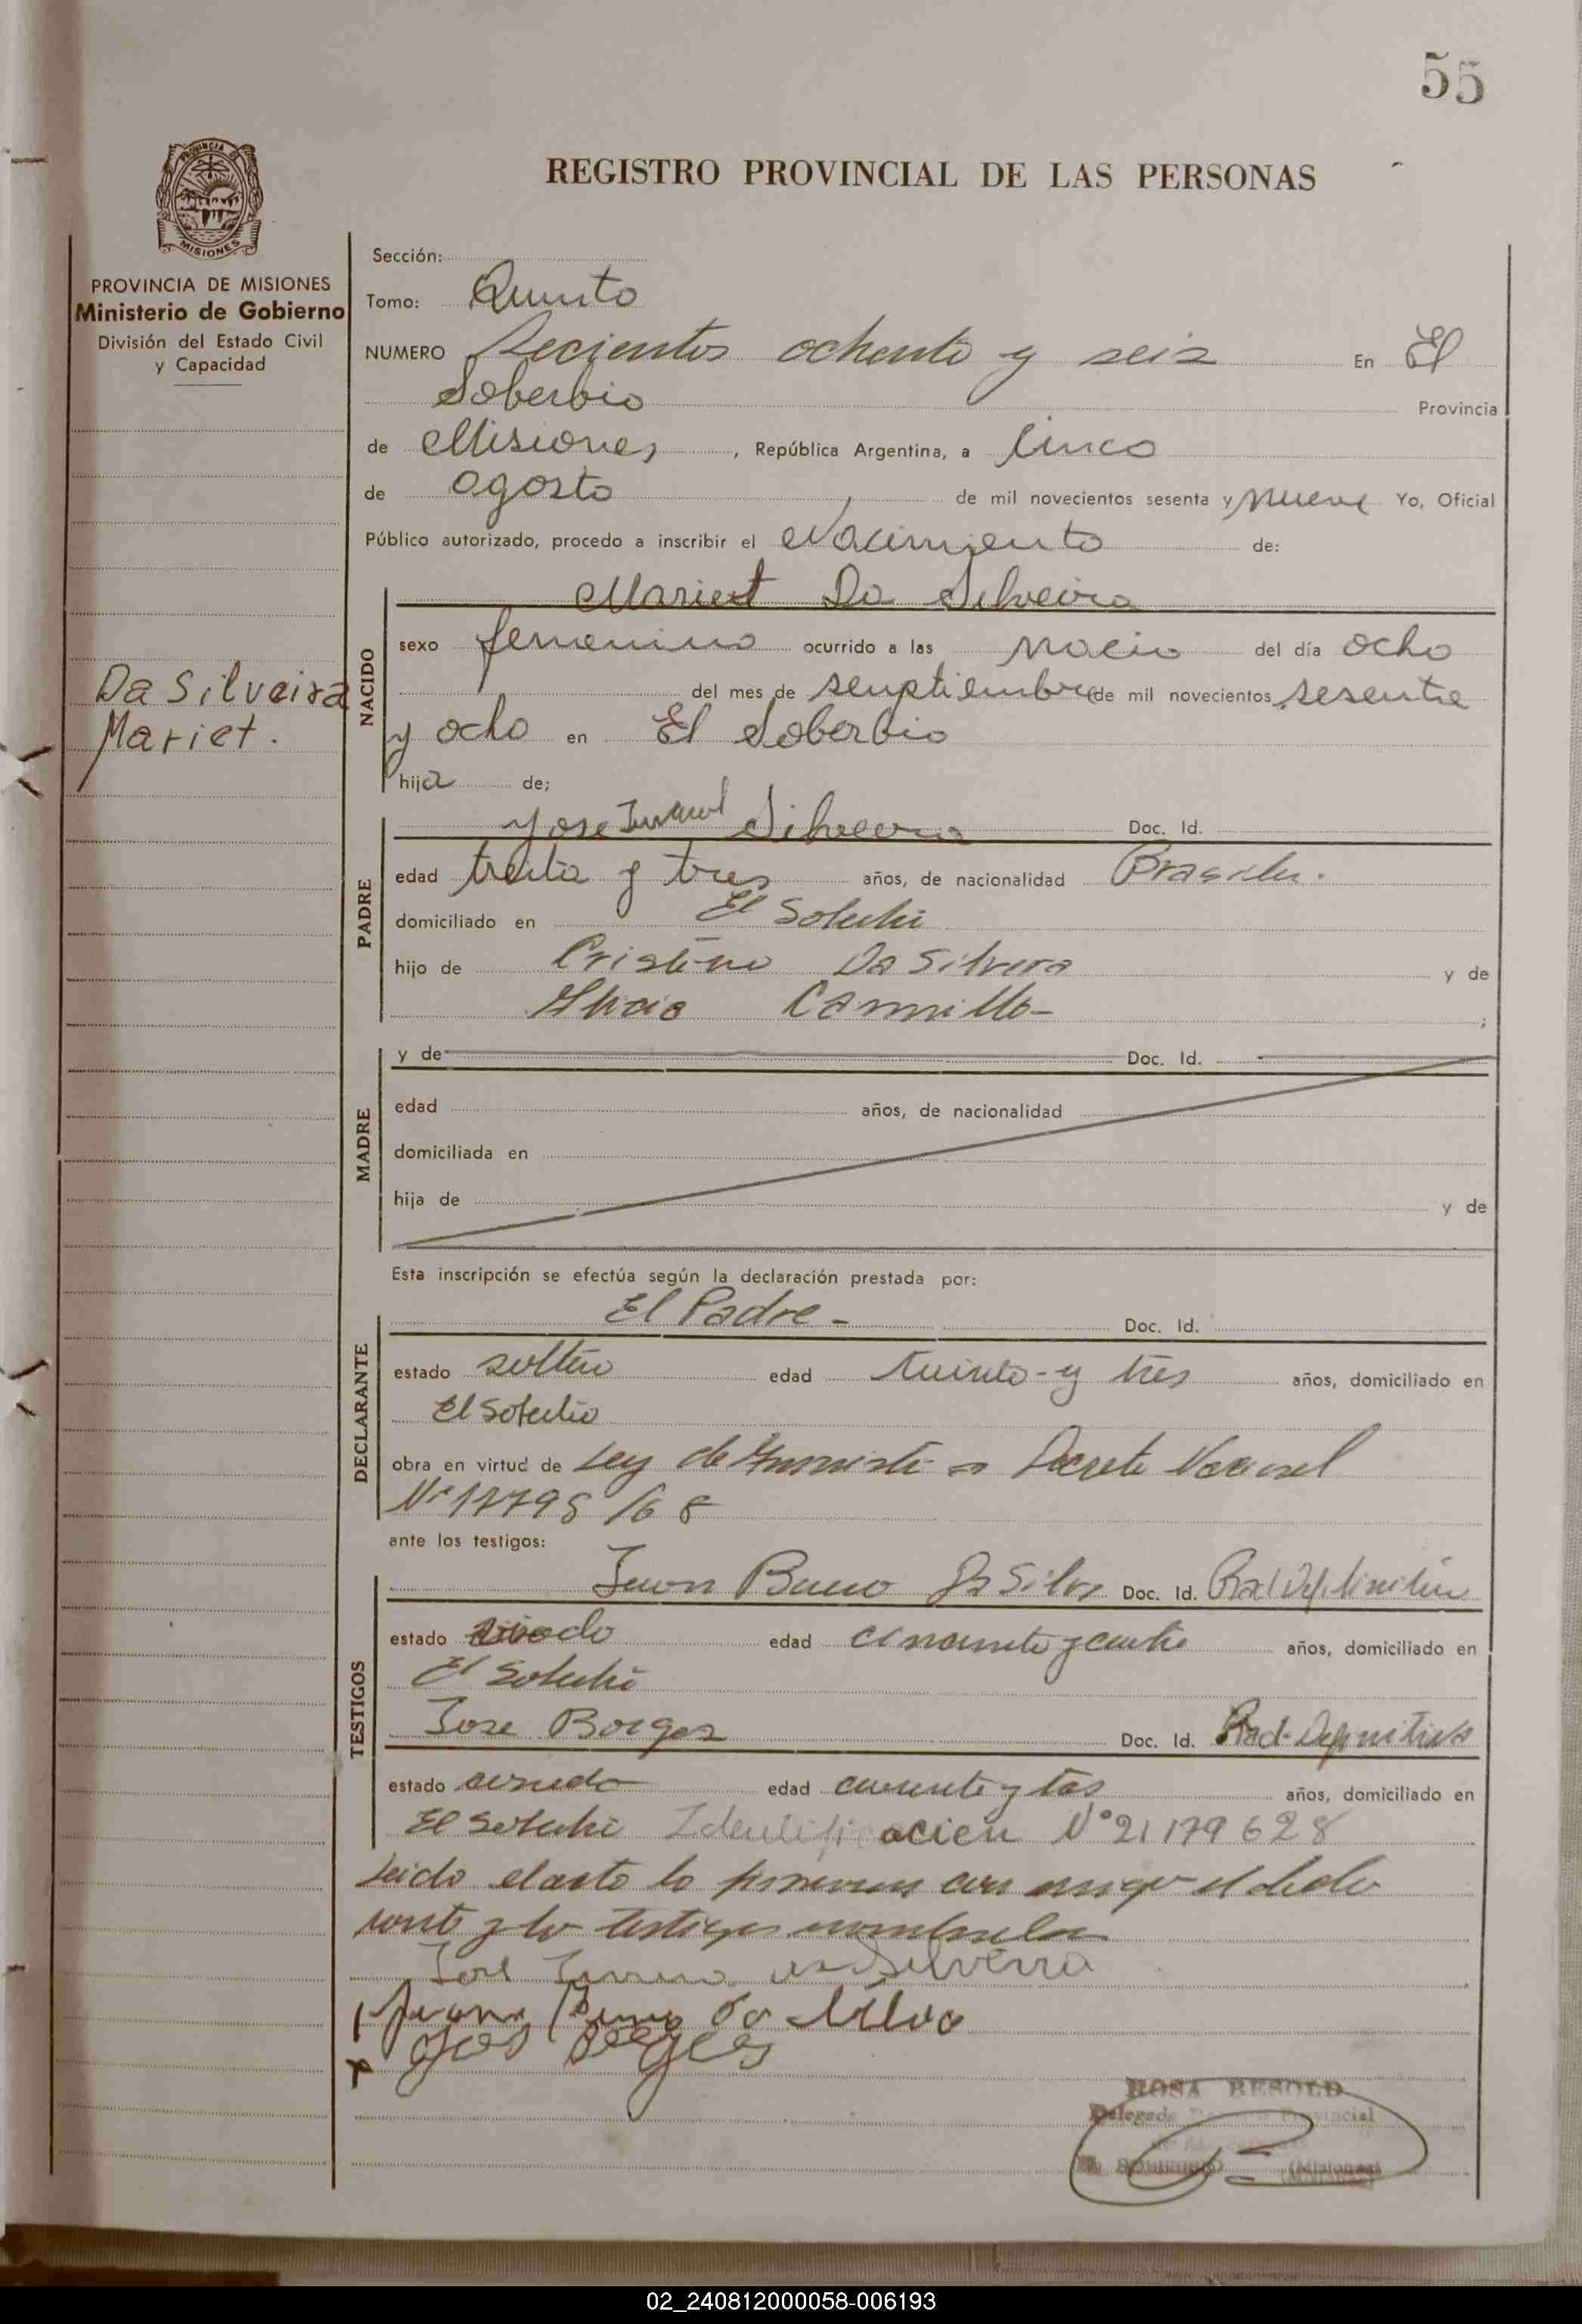 55
REGISTRO PROVINCIAL DE LAS PERSONAS
PROVINCIA DE MISIONES
MISIONES
PROVINCIA DE MISIONES
Ministerio de Gobierno
División del Estado Civil
y Capacidad
Da Silveira
Mariet.
Sección:
Tomo: Quinto
NUMERO ochenta y seis En El
Soberbio Provincia
de Misiones, República Argentina, a Cinco
de agosto de mil novecientos sesenta y nueve Yo, Oficial
Público autorizado, procedo a inscribir el Nacimiento de:
Mariet Da Silveira
NACIDO
sexo femenino ocurrido a las nacio del día ocho
del mes de senptiembre de mil novecientos sesenta
y ocho en El Soberbio
hija de;
PADRE
Jose Silveira Doc. Id.
edad treita y tres años, de nacionalidad
domiciliado en El Soberbio
hijo de Cristino Da Silvera y de
Cammillo - ;
MADRE
y de Doc. Id.
edad años, de nacionalidad
domiciliada en
hija de y de
Esta inscripción se efectúa según la declaración prestada por:
DECLARANTE
El Padre - Doc. Id.
estado soltero edad treinta - y tres años, domiciliado en
El Soberbio
obra en virtud de Ley de Decreto Nacional
Nº 17795/68
ante los testigos:
TESTIGOS
Juan Bueno Da Silva Doc. Id.
estado edad años, domiciliado en
El Soberbio
Jose Borges Doc. Id. Rad-Definitiva
estado edad cuarenta y tres años, domiciliado en
El Soberbio Identificacien Nº 21179628
Leido el acto lo
y los testigos
Jose da Silveira
Juan Bueno da Silva
x Jose Borges
ROSA BESOLD
Delegada Registro Provincial
EL SOBERBIO (Misiones)
02_240812000058-006193